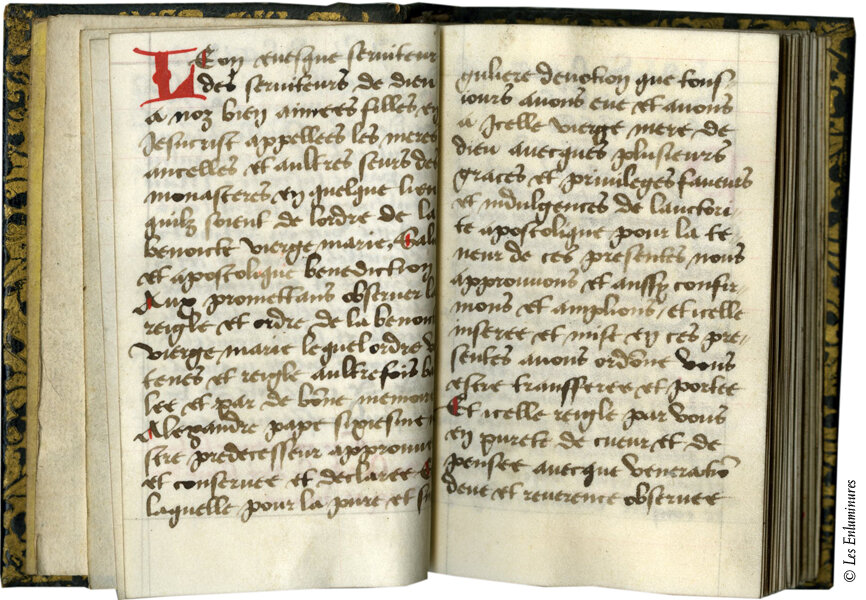 Leon euesque seruiteur
des seruiteurs de dieu
a noz bien aimees filles en
Jesucrist appellees les meres
ancelles et aultres seurs des
monasteres en quelque lieu
quilz soient de lordre de la
benoicte vierge marie, Sal
et apostolique benediction
Aux promettans obseruer la
reigle et ordre de la benoi
vierge marie lequel ordre
tenes et reigle aultrefois ba
lee et par de bõne memoire
Alexandre pape sixiesme
stre predecesseur approuue
et conferuee et declaree
laquelle pour la pure et si
guliere deuotion que tous-
iours auons eue et auons
a Icelle vierge mere de
dieu auecques plusieurs
graces et priuileges faueurs
et indulgences de lauctori-
te apostolique pour la te-
neur de ces presentes nous
approuuons et aussy confir-
mons et amplions, et icelle
inseree et mise en ces pre-
sentes auons ordõne vous
estre transferee et portee
Et icelle reigle par vous
en purete de cueur et de
pensee auecque veneratiõ
deue et reuerence obseruee
© Les Enluminures